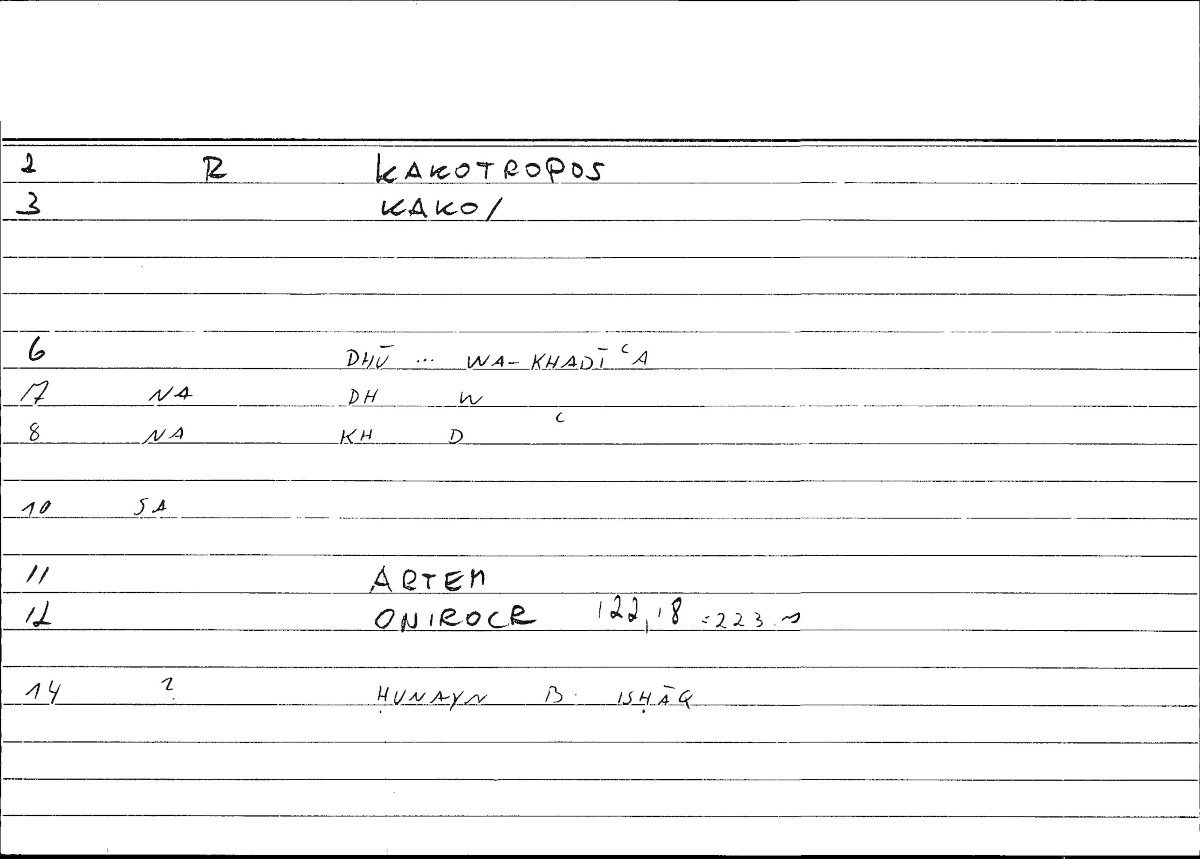 2 R KAKOTROPOS
3 KAKO/
6 DHŪ ... WA-KHADĪʿA
17 NA DH W
8 NA KH D ʿ
10 SA
11 ARTEM
12 ONIROCR 122,18 = 223.
14 ? ḤUNAYN B. ISḤĀQ